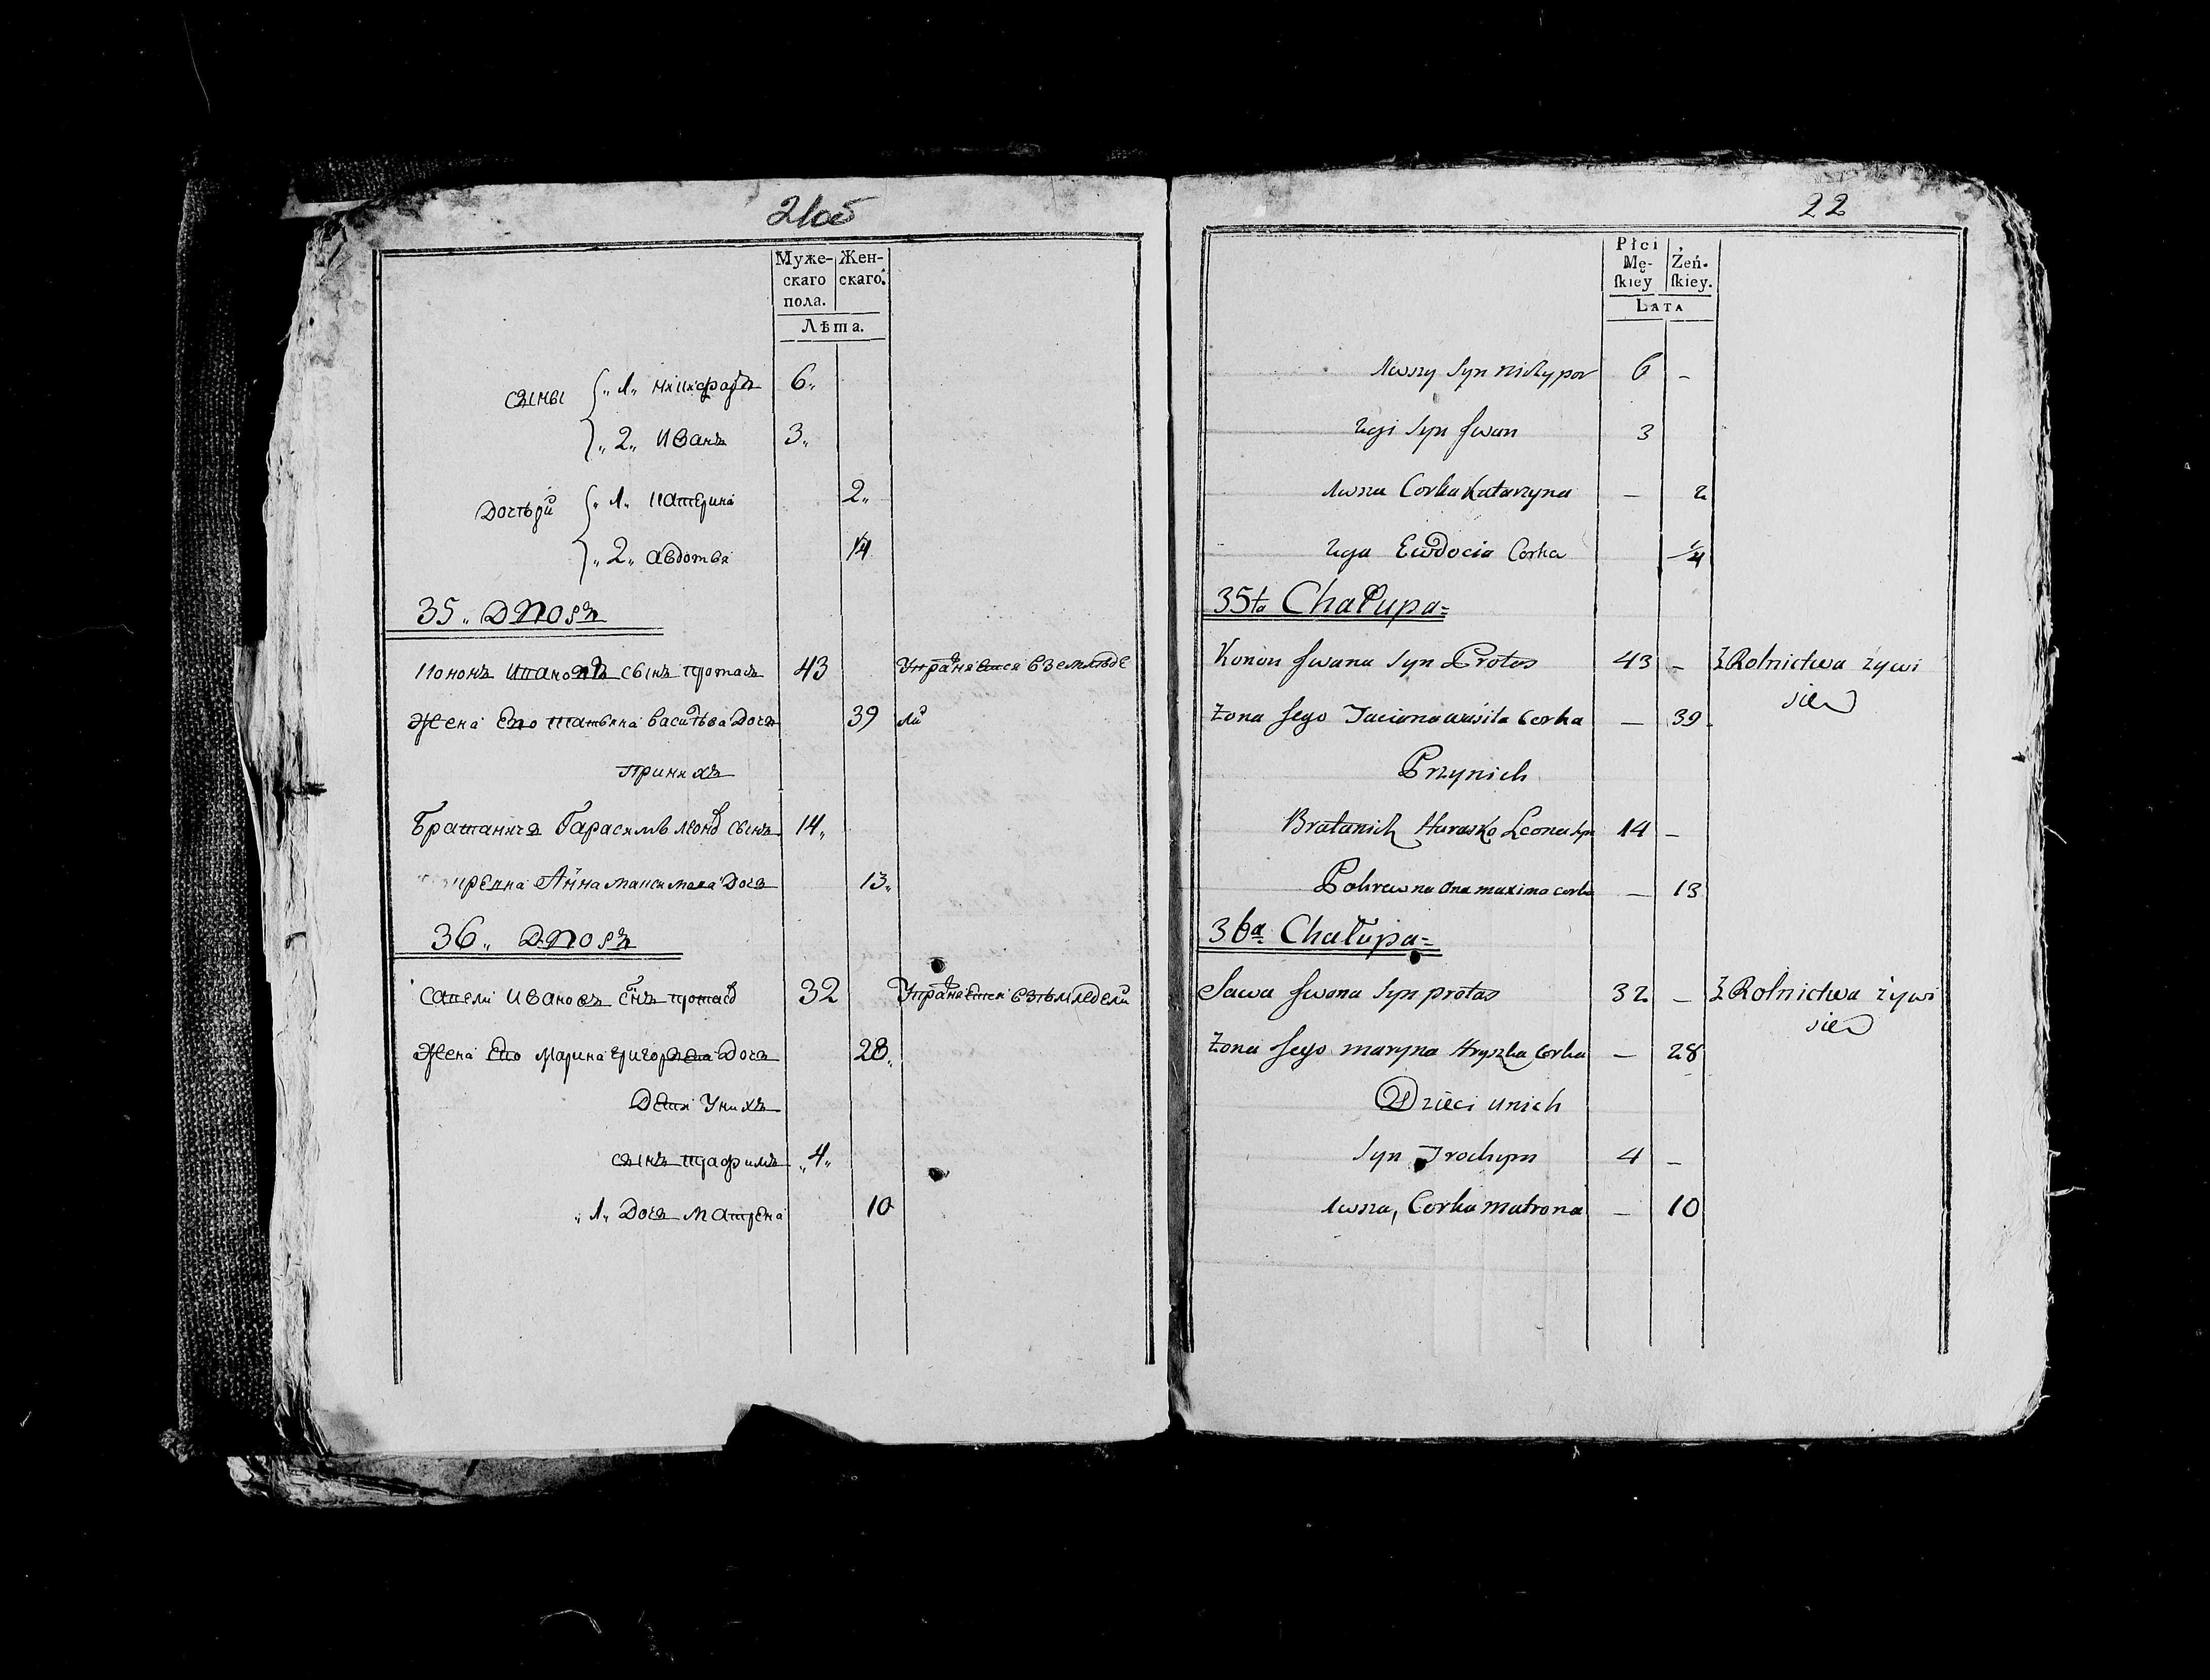 21об
Муже- Жен-
скаго скаго.
пола.
Лѣта.
сыны 1 Никифоръ 6
2 Иванъ 3
Дочъри 1 Катерина 2
2 Авдотья 1/4
35 Дворъ
Кононъ Ивановъ сынъ протасъ 43 Упражняется в земльде
Жена Его Татьяна васильва Дочь 39 ли
При них
Братаничь Гарасимъ леонов сынъ 14
Анна максимова Дочь 13
36 Дворъ
Савели Ивановъ снъ протасов 32 Упражняется взъмледели
Жена Его Марина григорьева Дочь 28
Дети Унихъ
сынъ трофимъ 4
1 Дочь матрена 10
22
Płci
Mę- Żeń-
ſkiey ſkiey.
LATA
1wszy Syn Nichypor 6 -
2gi Syn Jwan 3
1wsza Corka Katarzyna - 2
2ga Ewdocia Corka 1/4
35ta Chałupa=
Konon Jwana Syn Protas 43 - Z Rolnictwa żywi
się
Żona Jego Taciana wasila Corka - 39
Przynich
Bratanich Harasko Leona Syn 14 -
Pokrewna Ana maxima corka - 13
36a Chałupa=
Sawa Jwana Syn protas 32 - Z Rolnictwa żywi
się
Żona Jego maryna Hryszka Corka - 28
Dzieci unich
Syn Trochym 4 -
1wsza, Corka matrona - 10